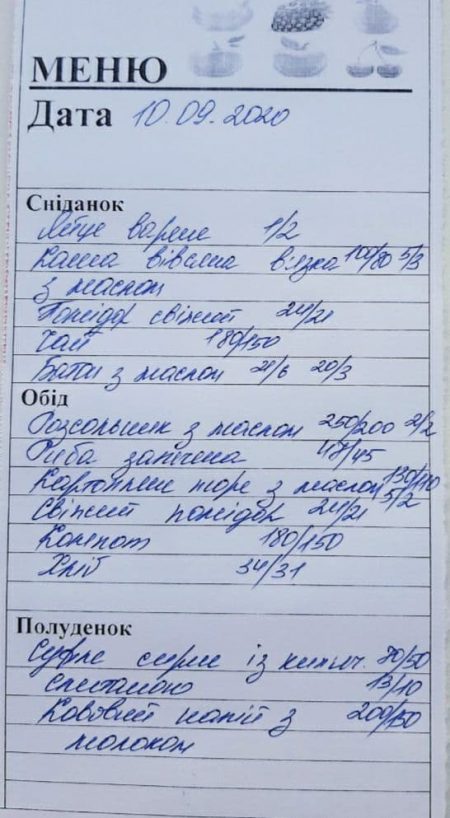 МЕНЮ
Дата 10.09.2020
Сніданок
Яйце варене 1/2
Каша вівсяна в'язка 100/80 5/3
з маслом
Помідор свіжий 24/21
Чай 180/150
Батон з маслом 20/3
Обід
Розсольник з маслом 250/200 2/2
Риба запечена 47/45
Картопляне пюре з маслом 130/110
5/2
Свіжий помідор 24/21
Компот 180/150
Хліб 34/31
Полуденок
Суфле сирне із 70/50
сметаною 13/10
Кавовий напій з 200/150
молоком